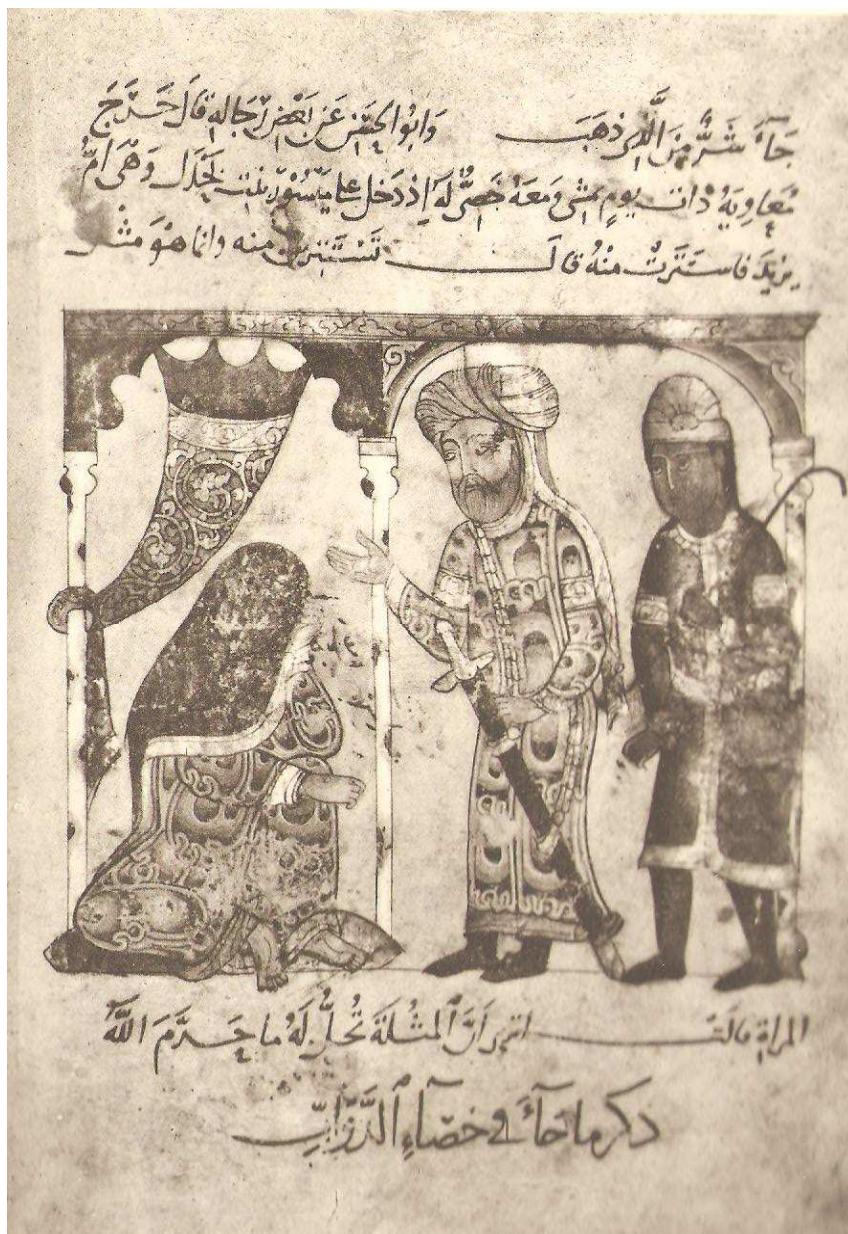 جَآءَ شَرٌّ مِنَ الَّذِى ذَهَبَ وَابُو الحَسَن عَن بَعْض رِجَالِهِ قَالَ خَرَجَ
مُعَاوِيَة ذات يومٍ يمشى وَمَعَهُ خَصِىٌّ لَهُ اِذ دَخَلَ على مَيسُون بنت بَحْدَل وَهْىَ امُّ
يزيدَ فاستَترَتْ مِنْهُ قالَ تَسْتَترينَ منه وانما هوَ مثْل
المراةِ قالَت اترى اَنَّ المثْلَةَ تُحِلُّ لَهُ ما حَرَّمَ اللَّه
ذكر ما جَآءَ فى خصَآءِ الدَّوَآبِّ